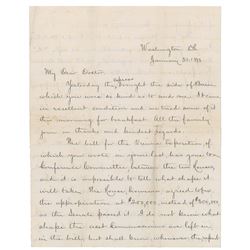 Washington D.C.
January 30, 189
My Dear Doctor:
express
Yesterday the brought the side of Bacon
which you were so kind as to send me. It came
in excellent condition and we tried some of it
this morning for breakfast. All the family
join in thanks and kindest regards.
The bill for the Omaha Exposition, of
which you wrote me some has gone to a
Conference Committee between the two houses,
and it is impossible to tell what shape it
will take. The House, however, agreed to
the appropriation at $200,000 instead of $
as the Senate passed it. I do not know what
shape the Commissioners are left in
in this bill, but shall know when the report